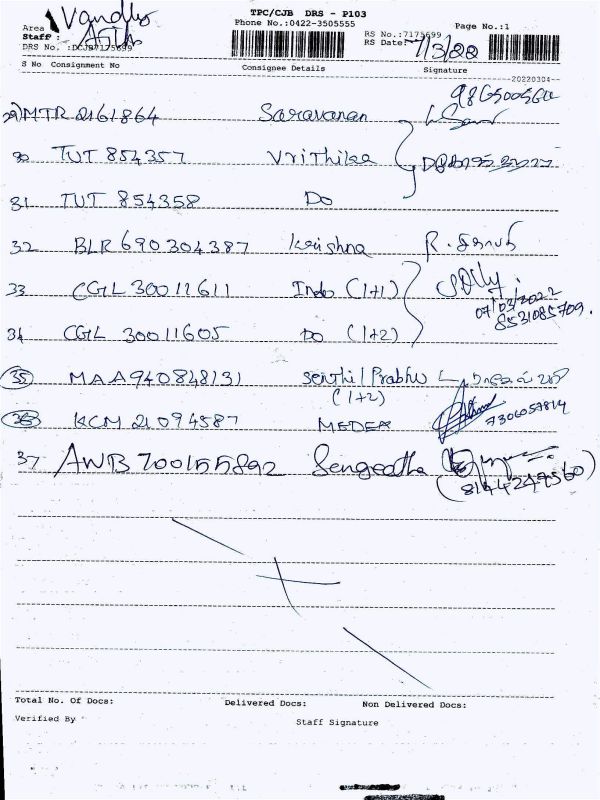 TPC/CJB DRS - P103
Phone No.:0422-3505555
Page No.:1
Area
Staff :
DRS No. :DCJB7175699
RS No.:7175699
RS Date: 7/3/22
S No Consignment No Consignee Details Signature
20220304
29) MTR 2161864 Saravanan
30 TUT 854357 Vrithika
31 TUT 854358 Do
32 BLR 690304387 Krishna R.
33 CGL 30011611 Indo (1+1)
07/03/2022
8531085709.
34 CGL 30011605 Do (1+2)
35 MAA940848131 Senthil Prabhu
(1+2)
36 KCM 21094587 MEDEA 7306057814
37 AWB 700155892 Sengeetha
(8144249560)
Total No. Of Docs: Delivered Docs: Non Delivered Docs:
Verified By Staff Signature